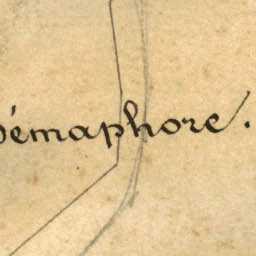 Sémaphore.